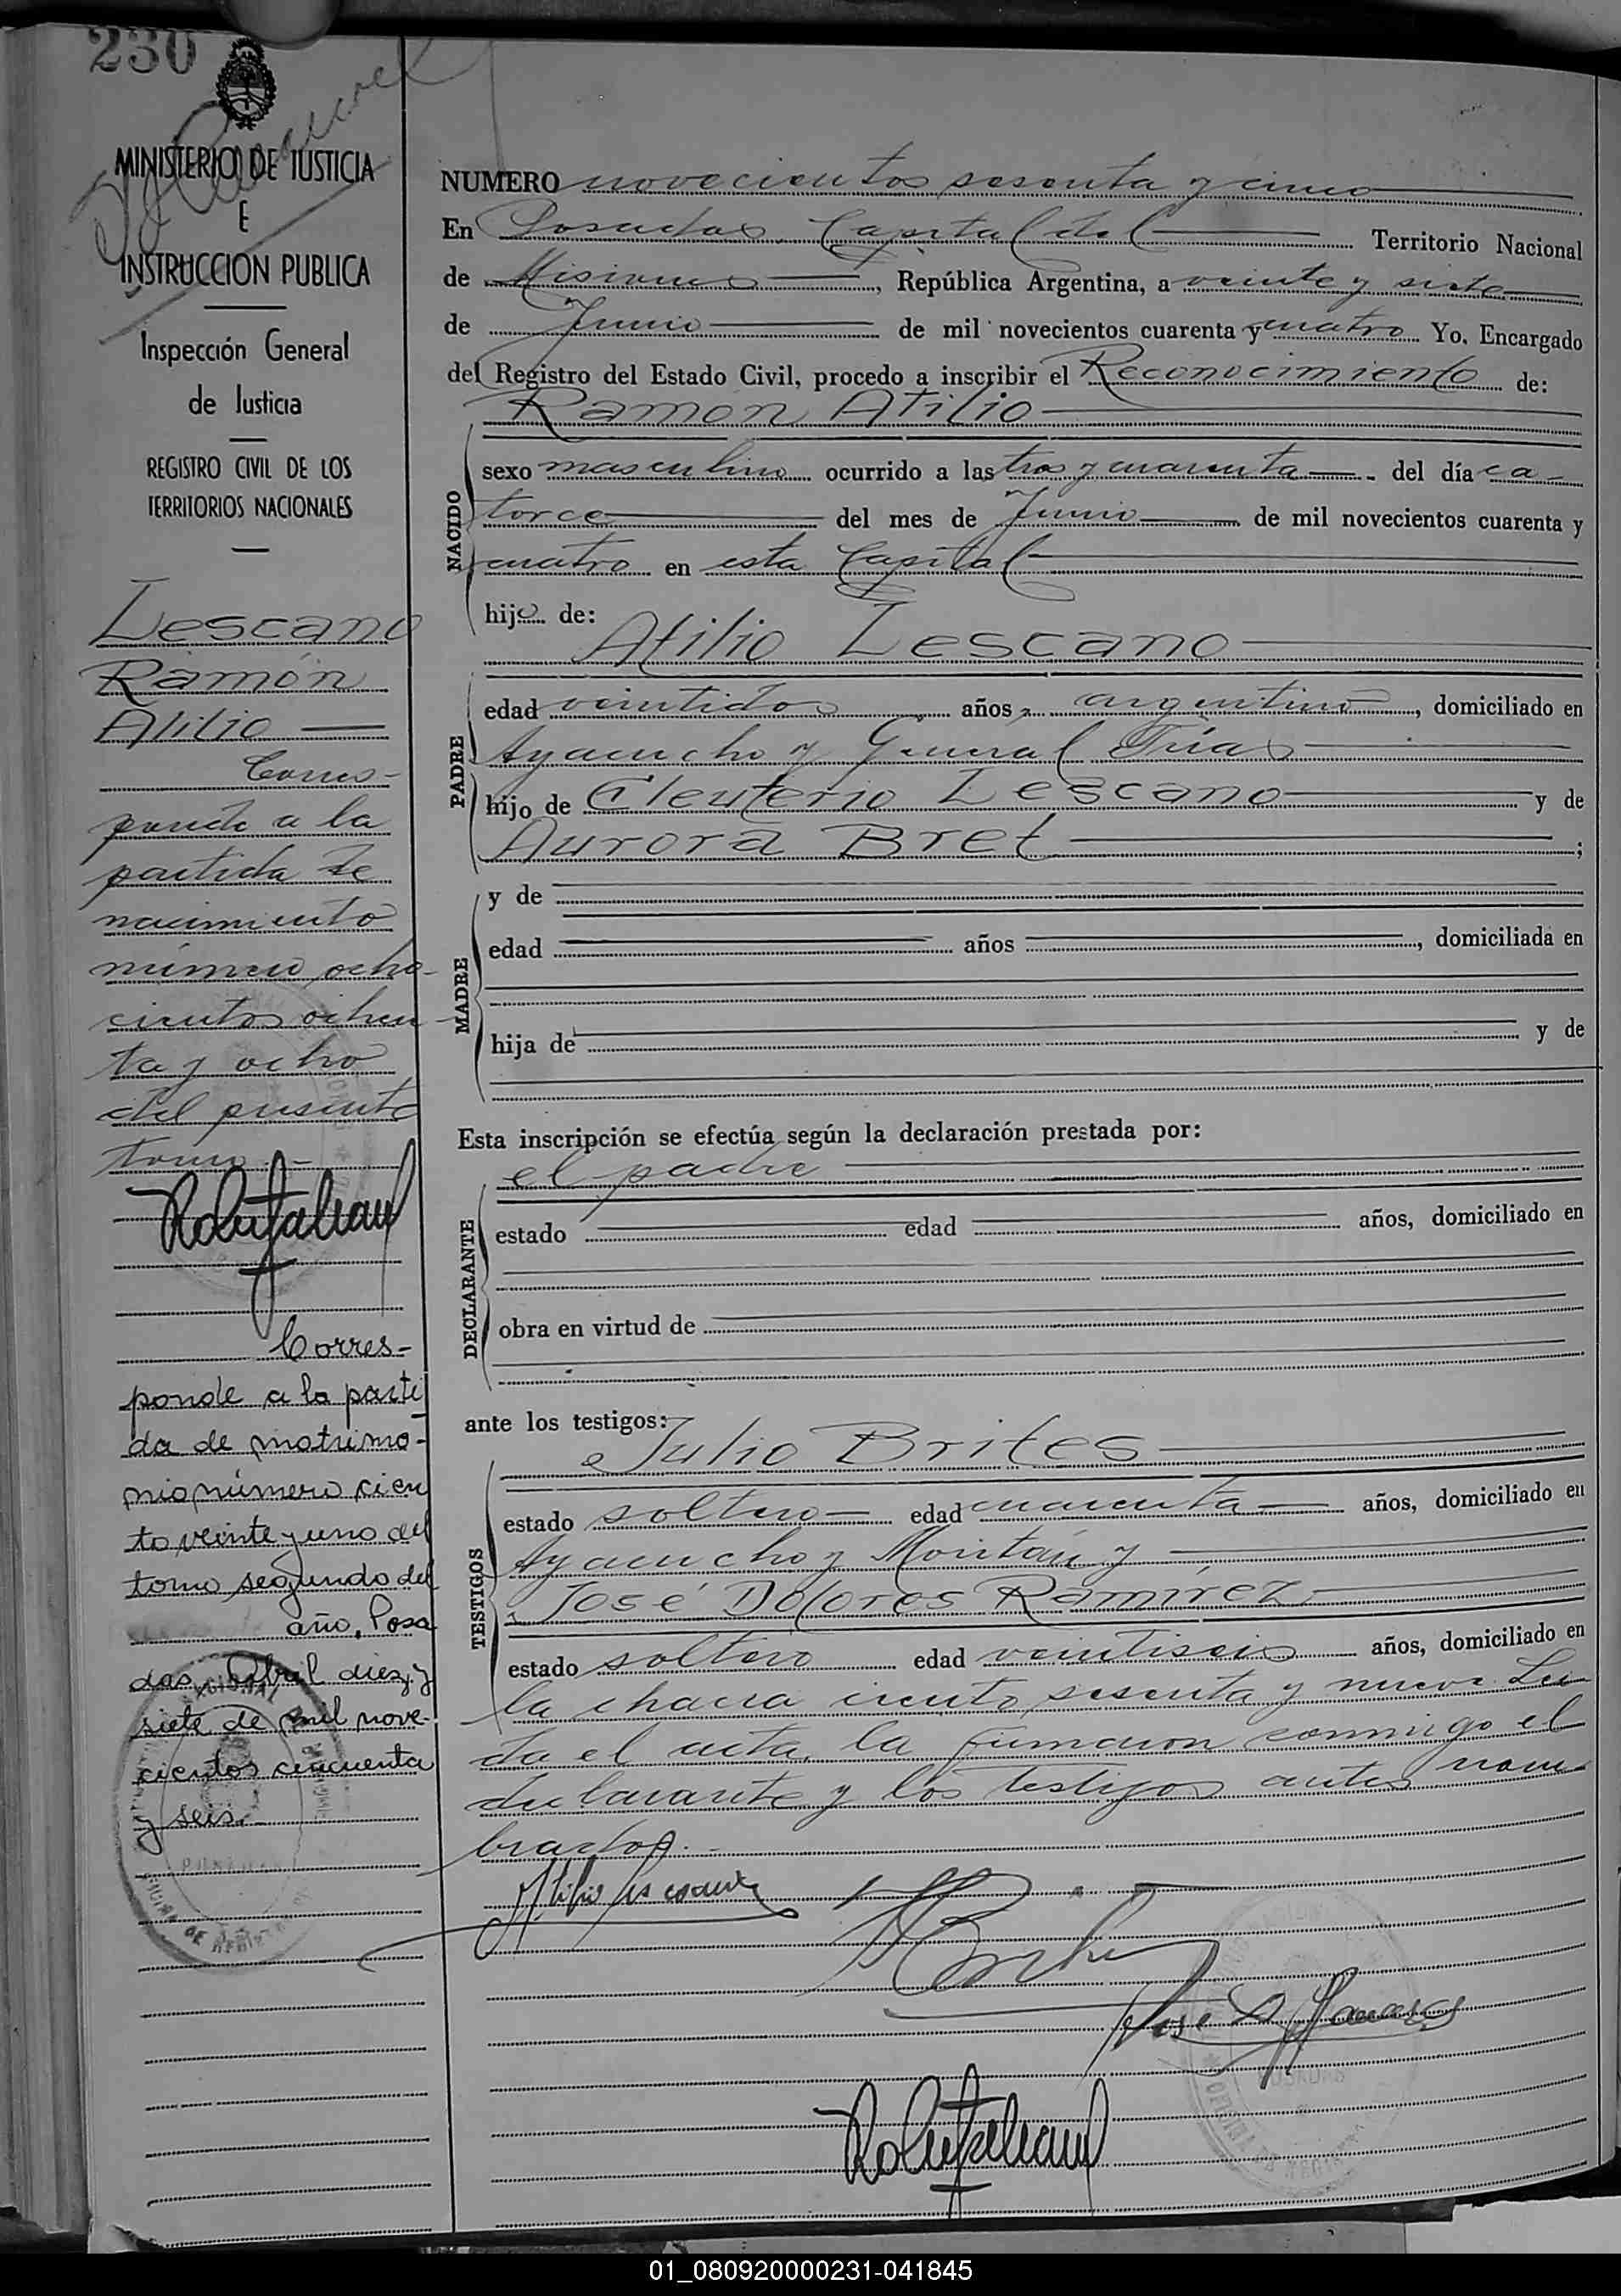 230
MINISTERIO DE JUSTICIA
E
INSTRUCCION PUBLICA
Inspección General
de Justicia
REGISTRO CIVIL DE LOS
TERRITORIOS NACIONALES
Lescano
Ramón
Atilio
Corres-
ponde a la
partida de
nacimiento
número ocho-
cientos ochen
ta y ocho
del presente
tomo.-
Corres-
ponde a la parti
da de matrimo-
nio número cien
to veinte y uno del
tomo segundo del
año. Posa
das, Abril diez y
siete de mil nove-
cientos cincuenta
y seis.-
NUMERO novecientos sesenta y cinco
En Posadas, Capital del Territorio Nacional
de Misiones, República Argentina, a veinte y siete
de Junio de mil novecientos cuarenta y cuatro Yo, Encargado
del Registro del Estado Civil, procedo a inscribir el Reconocimiento de:
Ramón Atilio
NACIDO
sexo masculino ocurrido a las tres y cuarenta del día ca-
torce del mes de Junio de mil novecientos cuarenta y
cuatro en esta Capital
hijo de:
Atilio Lescano
PADRE
edad veintidos años, argentino, domiciliado en
Ayacucho y General Frías
hijo de Eleuterio Lescano y de
Aurora Bret;
MADRE
y de
edad años, domiciliada en
hija de y de
Esta inscripción se efectúa según la declaración prestada por:
el padre
DECLARANTE
estado edad años, domiciliado en
obra en virtud de
ante los testigos:
Julio Brites
TESTIGOS
estado soltero edad cuarenta años, domiciliado en
Ayacucho y y
José Dolores Ramírez
estado soltero edad veintiseis años, domiciliado en
la chacra ciento sesenta y nueve. Lei-
da el acta, la firmaron conmigo el
declarante y los testigos antes nom-
brados.-
Atilio Lescano
José D Ramirez
01_080920000231-041845